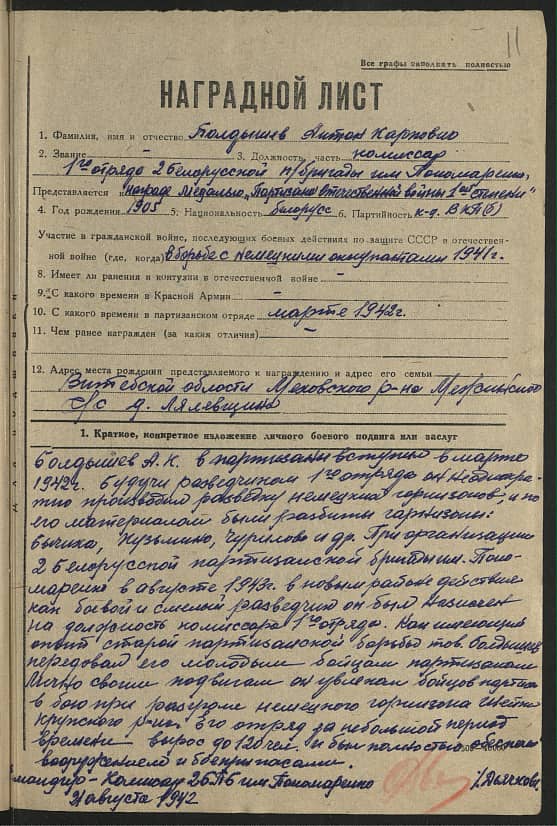 11
Все графы заполнять полностью
НАГРАДНОЙ ЛИСТ
1. Фамилия, имя и отчество Болдышев Антон Карпович
2. Звание - 3. Должность, часть комиссар
1го отряда 2 Белорусской п/бригады им. Пономаренко,
Представляется к награде медалью "Партизана Отечественной войны 1ой степени"
4. Год рождения 1905 5. Национальность белорусс 6. Партийность к-д. ВКП(б)
Участие в гражданской войне, последующих боевых действиях по защите СССР в отечествен-
ной войне (где, когда) в борьбе с немецкими оккупантами 1941г.
8. Имеет ли ранения и контузии в отечественной войне -
9. С какого времени в Красной Армии -
10. С какого времени в партизанском отряде марте 1942г.
11. Чем ранее награжден (за какия отличия) -
12. Адрес места рождения представляемого к награждению и адрес его семьи
Витебской области Меховского р-на
с/с д. Лялевщина
1. Краткое, конкретное изложение личного боевого подвига или заслуг
Болдышев А.К. в партизаны вступил в марте
1942г. будучи разведчиком 1го отряда он неоднократ-
но производил разведку немецких гарнизонов, и по
его материалам были разбиты гарнизоны:
Бычиха, Кузьмино, Чурилово и др. При организации
2 Белорусской партизанской бригады им. Поно-
маренко в августе 1943г. в новом районе действие
как боевой и смелый разведчик он был назначен
на должность комиссара 1го отряда. Как имеющий
опыт старой партизанской борьбы тов. Болдышев
передавал его молодым бойцам партизанам
Лично своим подвигам он увлекал бойцов партизан
в бою при разгроме немецкого гарнизона
Крупского р-на. Его отряд за небольшой период
времени вырос до 120 чел. и был полностью
вооружением и боеприпасами.
Командир- Комиссар 2БПБ им. Пономаренко /Дьячков/
21 августа 1942